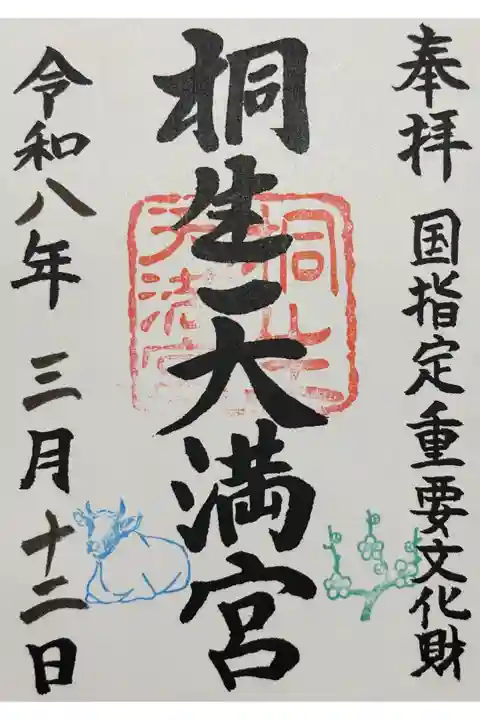 奉拝 国指定重要文化財
桐生天満宮
桐生天満宮
令和八年 三月十二日